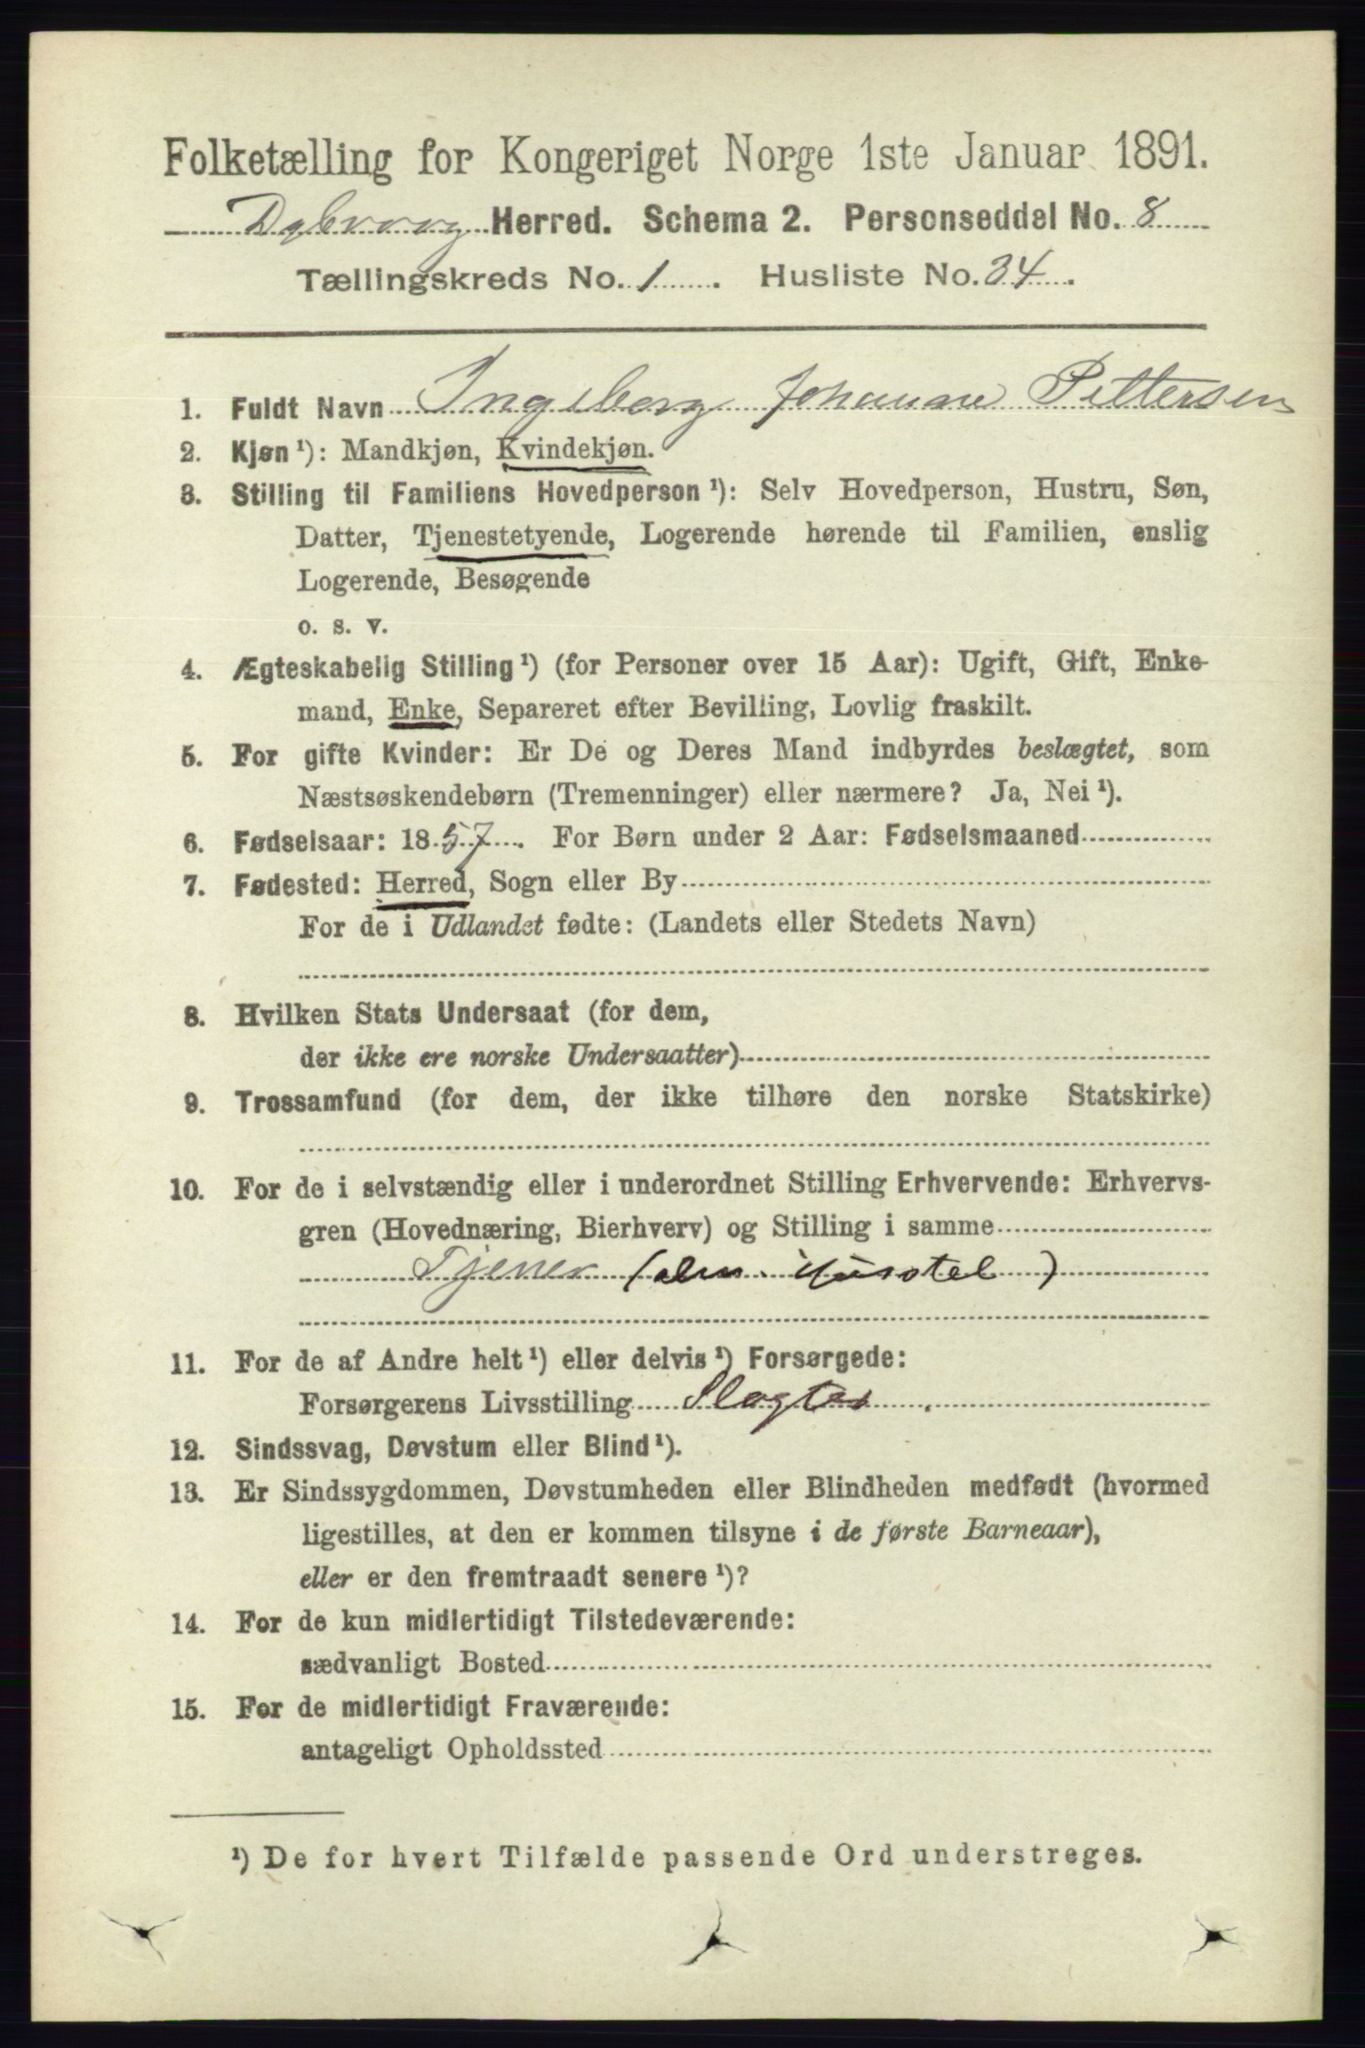 Folketælling for Kongeriget Norge 1ste Januar 1891.
Dybvaag Herred. Schema 2. Personseddel No. 8
Tællingskreds No. 1. Husliste No. 34.
1. Fuldt Navn Ingeborg Johanne Pettersen
2. Kjøn ¹): Mandkjøn, Kvindekjøn.
3. Stilling til Familiens Hovedperson ¹): Selv Hovedperson, Hustru, Søn,
Datter, Tjenestetyende, Logerende hørende til Familien, enslig
Logerende, Besøgende
o. s. v.
4. Ægteskabelig Stilling ¹) (for Personer over 15 Aar): Ugift, Gift, Enke-
mand, Enke, Separeret efter Bevilling, Lovlig fraskilt.
5. For gifte Kvinder: Er De og Deres Mand indbyrdes beslægtet, som
Næstsøskendebørn (Tremenninger) eller nærmere? Ja, Nei ¹).
6. Fødselsaar: 1857. For Børn under 2 Aar: Fødselsmaaned
7. Fødested: Herred, Sogn eller By
For de i Udlandet fødte: (Landets eller Stedets Navn)
8. Hvilken Stats Undersaat (for dem,
der ikke ere norske Undersaatter)
9. Trossamfund (for dem, der ikke tilhøre den norske Statskirke)
10. For de i selvstændig eller i underordnet Stilling Erhvervende: Erhvervs-
gren (Hovednæring, Bierhverv) og Stilling i samme
Tjener (alm. Husstel)
11. For de af Andre helt ¹) eller delvis ¹) Forsørgede:
Forsørgerens Livsstilling Slagter.
12. Sindssvag, Døvstum eller Blind ¹).
13. Er Sindssygdommen, Døvstumheden eller Blindheden medfødt (hvormed
ligestilles, at den er kommen tilsyne i de første Barneaar),
eller er den fremtraadt senere ¹)?
14. For de kun midlertidigt Tilstedeværende:
sædvanligt Bosted
15. For de midlertidigt Fraværende:
antageligt Opholdssted
¹) De for hvert Tilfælde passende Ord understreges.